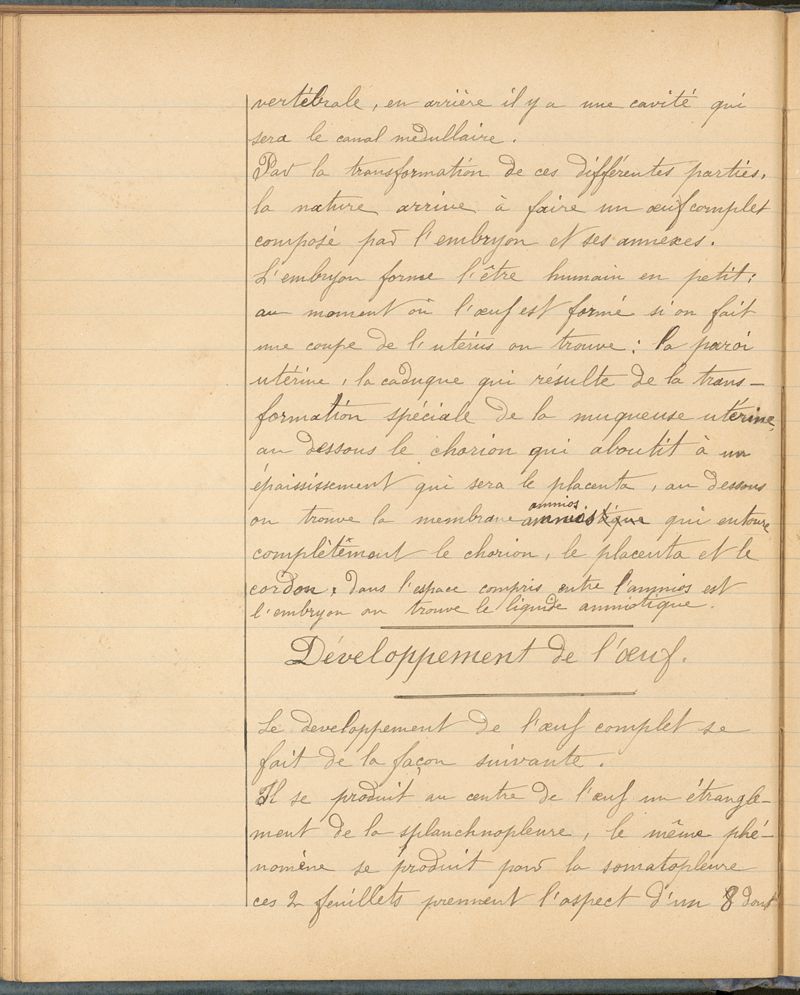 vertébrale, en arrière il y a une cavité qui
sera le canal medullaire.
Par la transformation de ces différentes parties,
la nature arrive à faire un œuf complet
composé par l'embryon et ses annexes.
L'embryon forme l'être humain en petit;
au moment où l'œuf est formé si on fait
une coupe de l'utérus on trouve: la paroi
utérine, la caduque qui résulte de la trans-
formation spéciale de la muqueuse utérine,
au dessous le chorion qui aboutit à un
épaississement qui sera le placenta, au dessous
on trouve la membrane amnios qui entoure
complètement le chorion, le placenta et le
cordon, dans l'espace compris entre l'amnios est
l'embryon on trouve le liquide amniotique.
Développement de l'œuf.
Le developpement de l'œuf complet se
fait de la façon suivante.
Il se produit au centre de l'œuf un étrangle-
ment de la splanchnopleure, le même phé-
nomène se produit pour la somatopleure
ces 2 feuillets prennent l'aspect d'un 8 dont